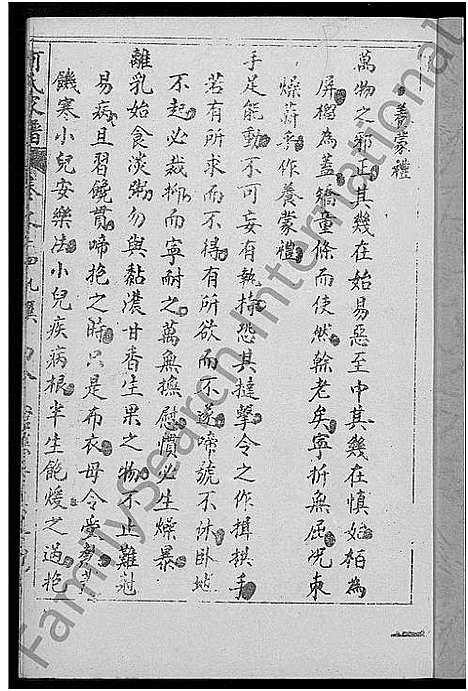 養蒙禮
萬物之邪正其幾在始易惡至中其幾在慎始栢為
屏榴為蓋矯童條而使然榦老矣寧折無屈況朿
燥蒋乎作養蒙禮
手足能動不可妄有執持恐其撻擊令之作揖拱手
若有所求而不得有所欲而不遂啼號不休卧地
不起必裁抑而寧耐之萬無撫慰慣必生燥暴
離乳始食淡粥勿與黏濃甘香生果之物不止難尅
易病且習饞貫啼抱之時只是布衣母令受熱
饑寒小兒安樂法小兒疾病根半生飽煖之過抱
何氏家譜
FamilySearch International